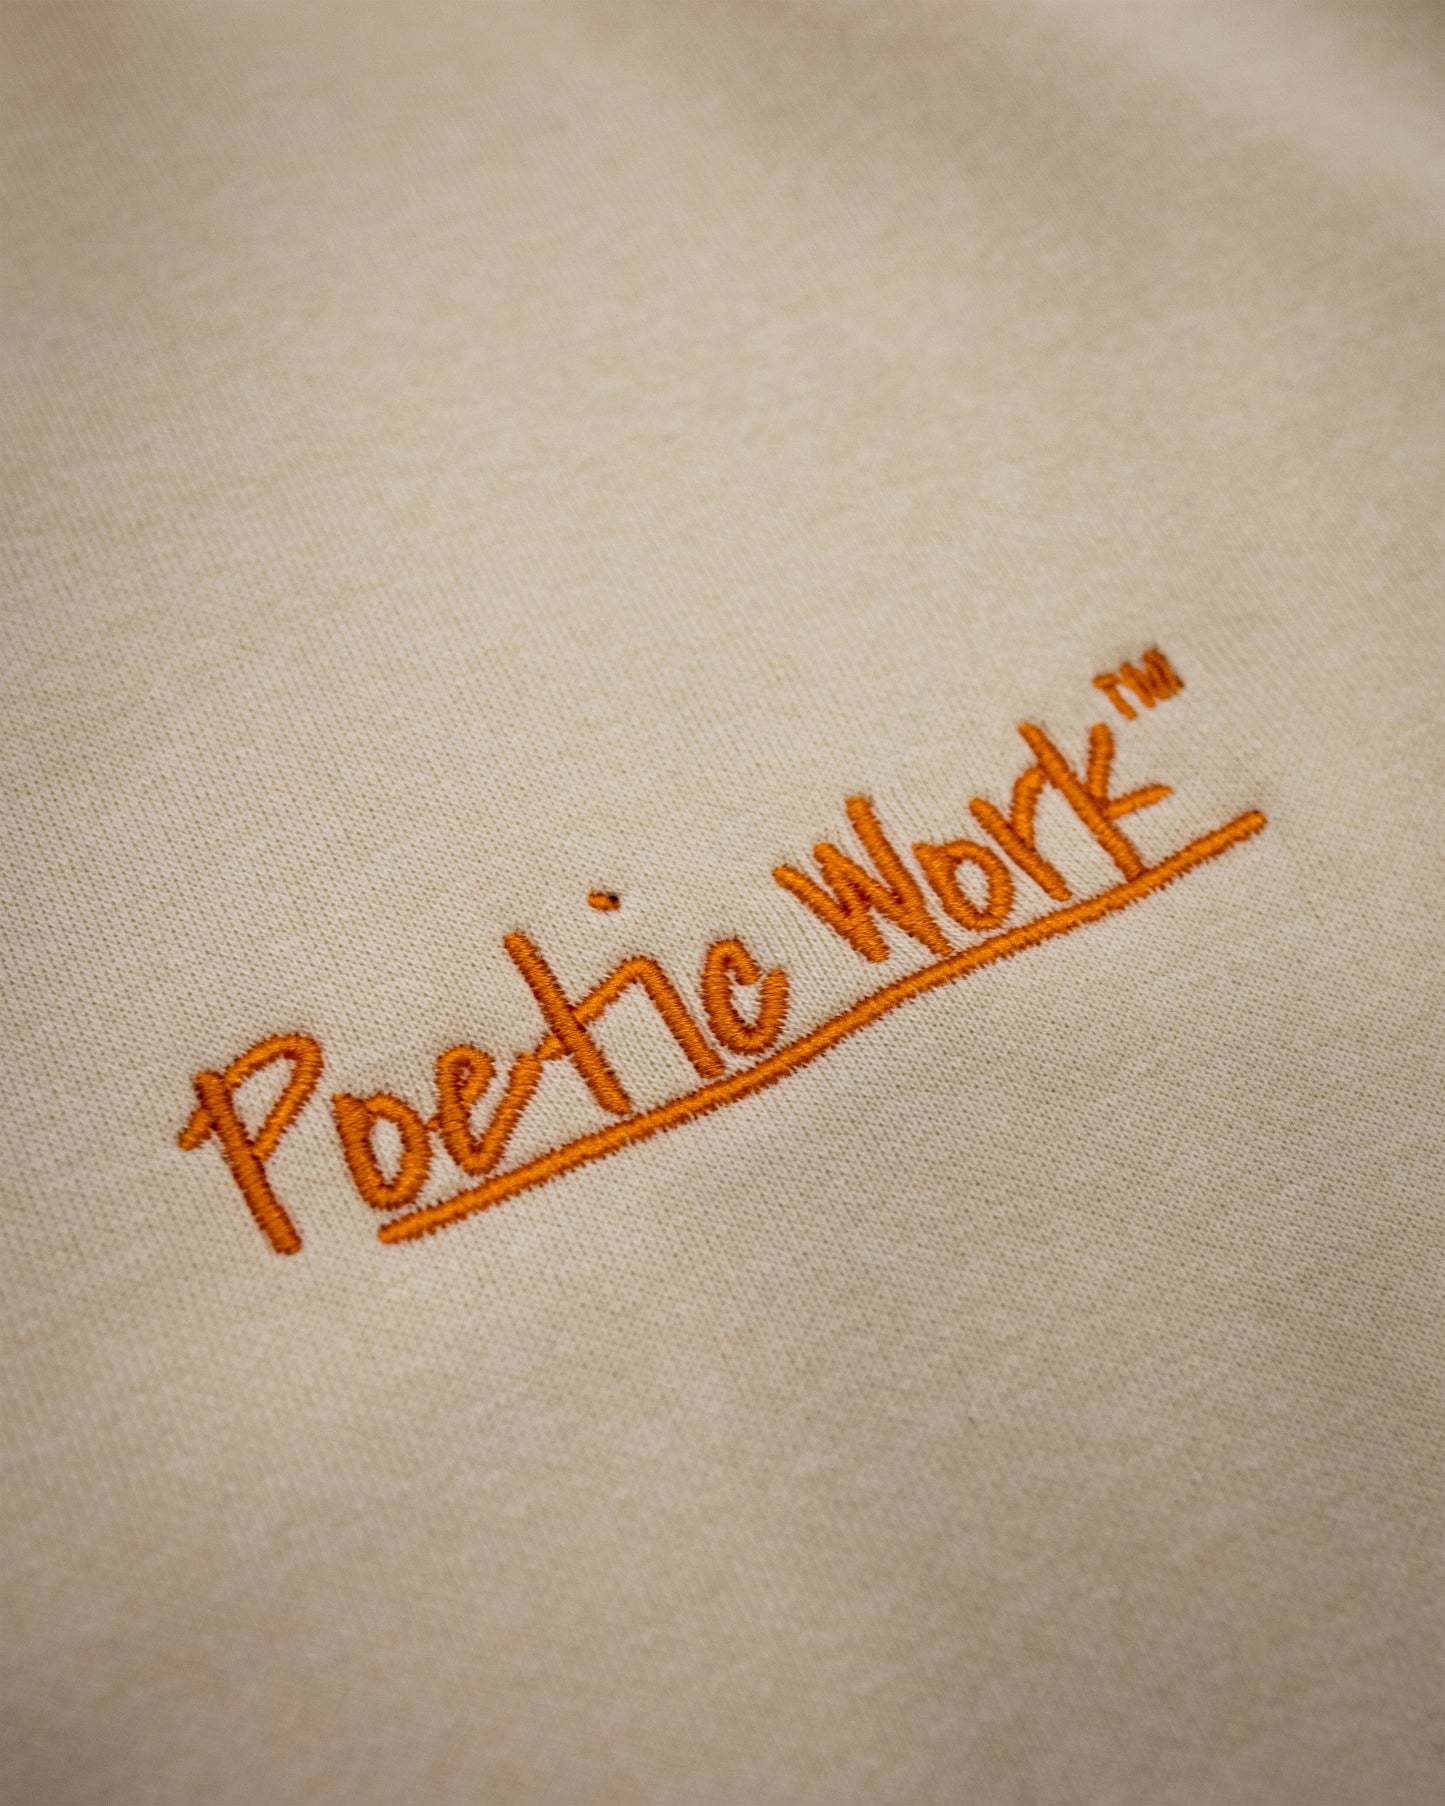 Poetic Work™